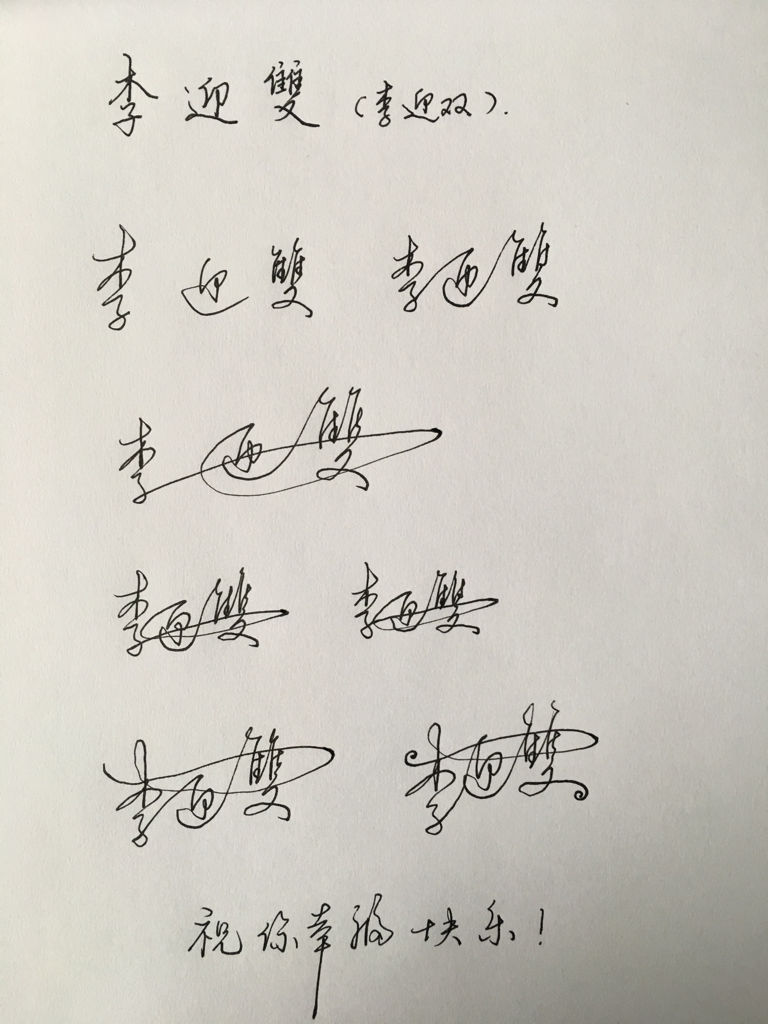 李迎雙（李迎双）.
李迎雙 李迎雙
李迎雙
李迎雙 李迎雙
李迎雙 李迎雙
祝你幸福快乐！